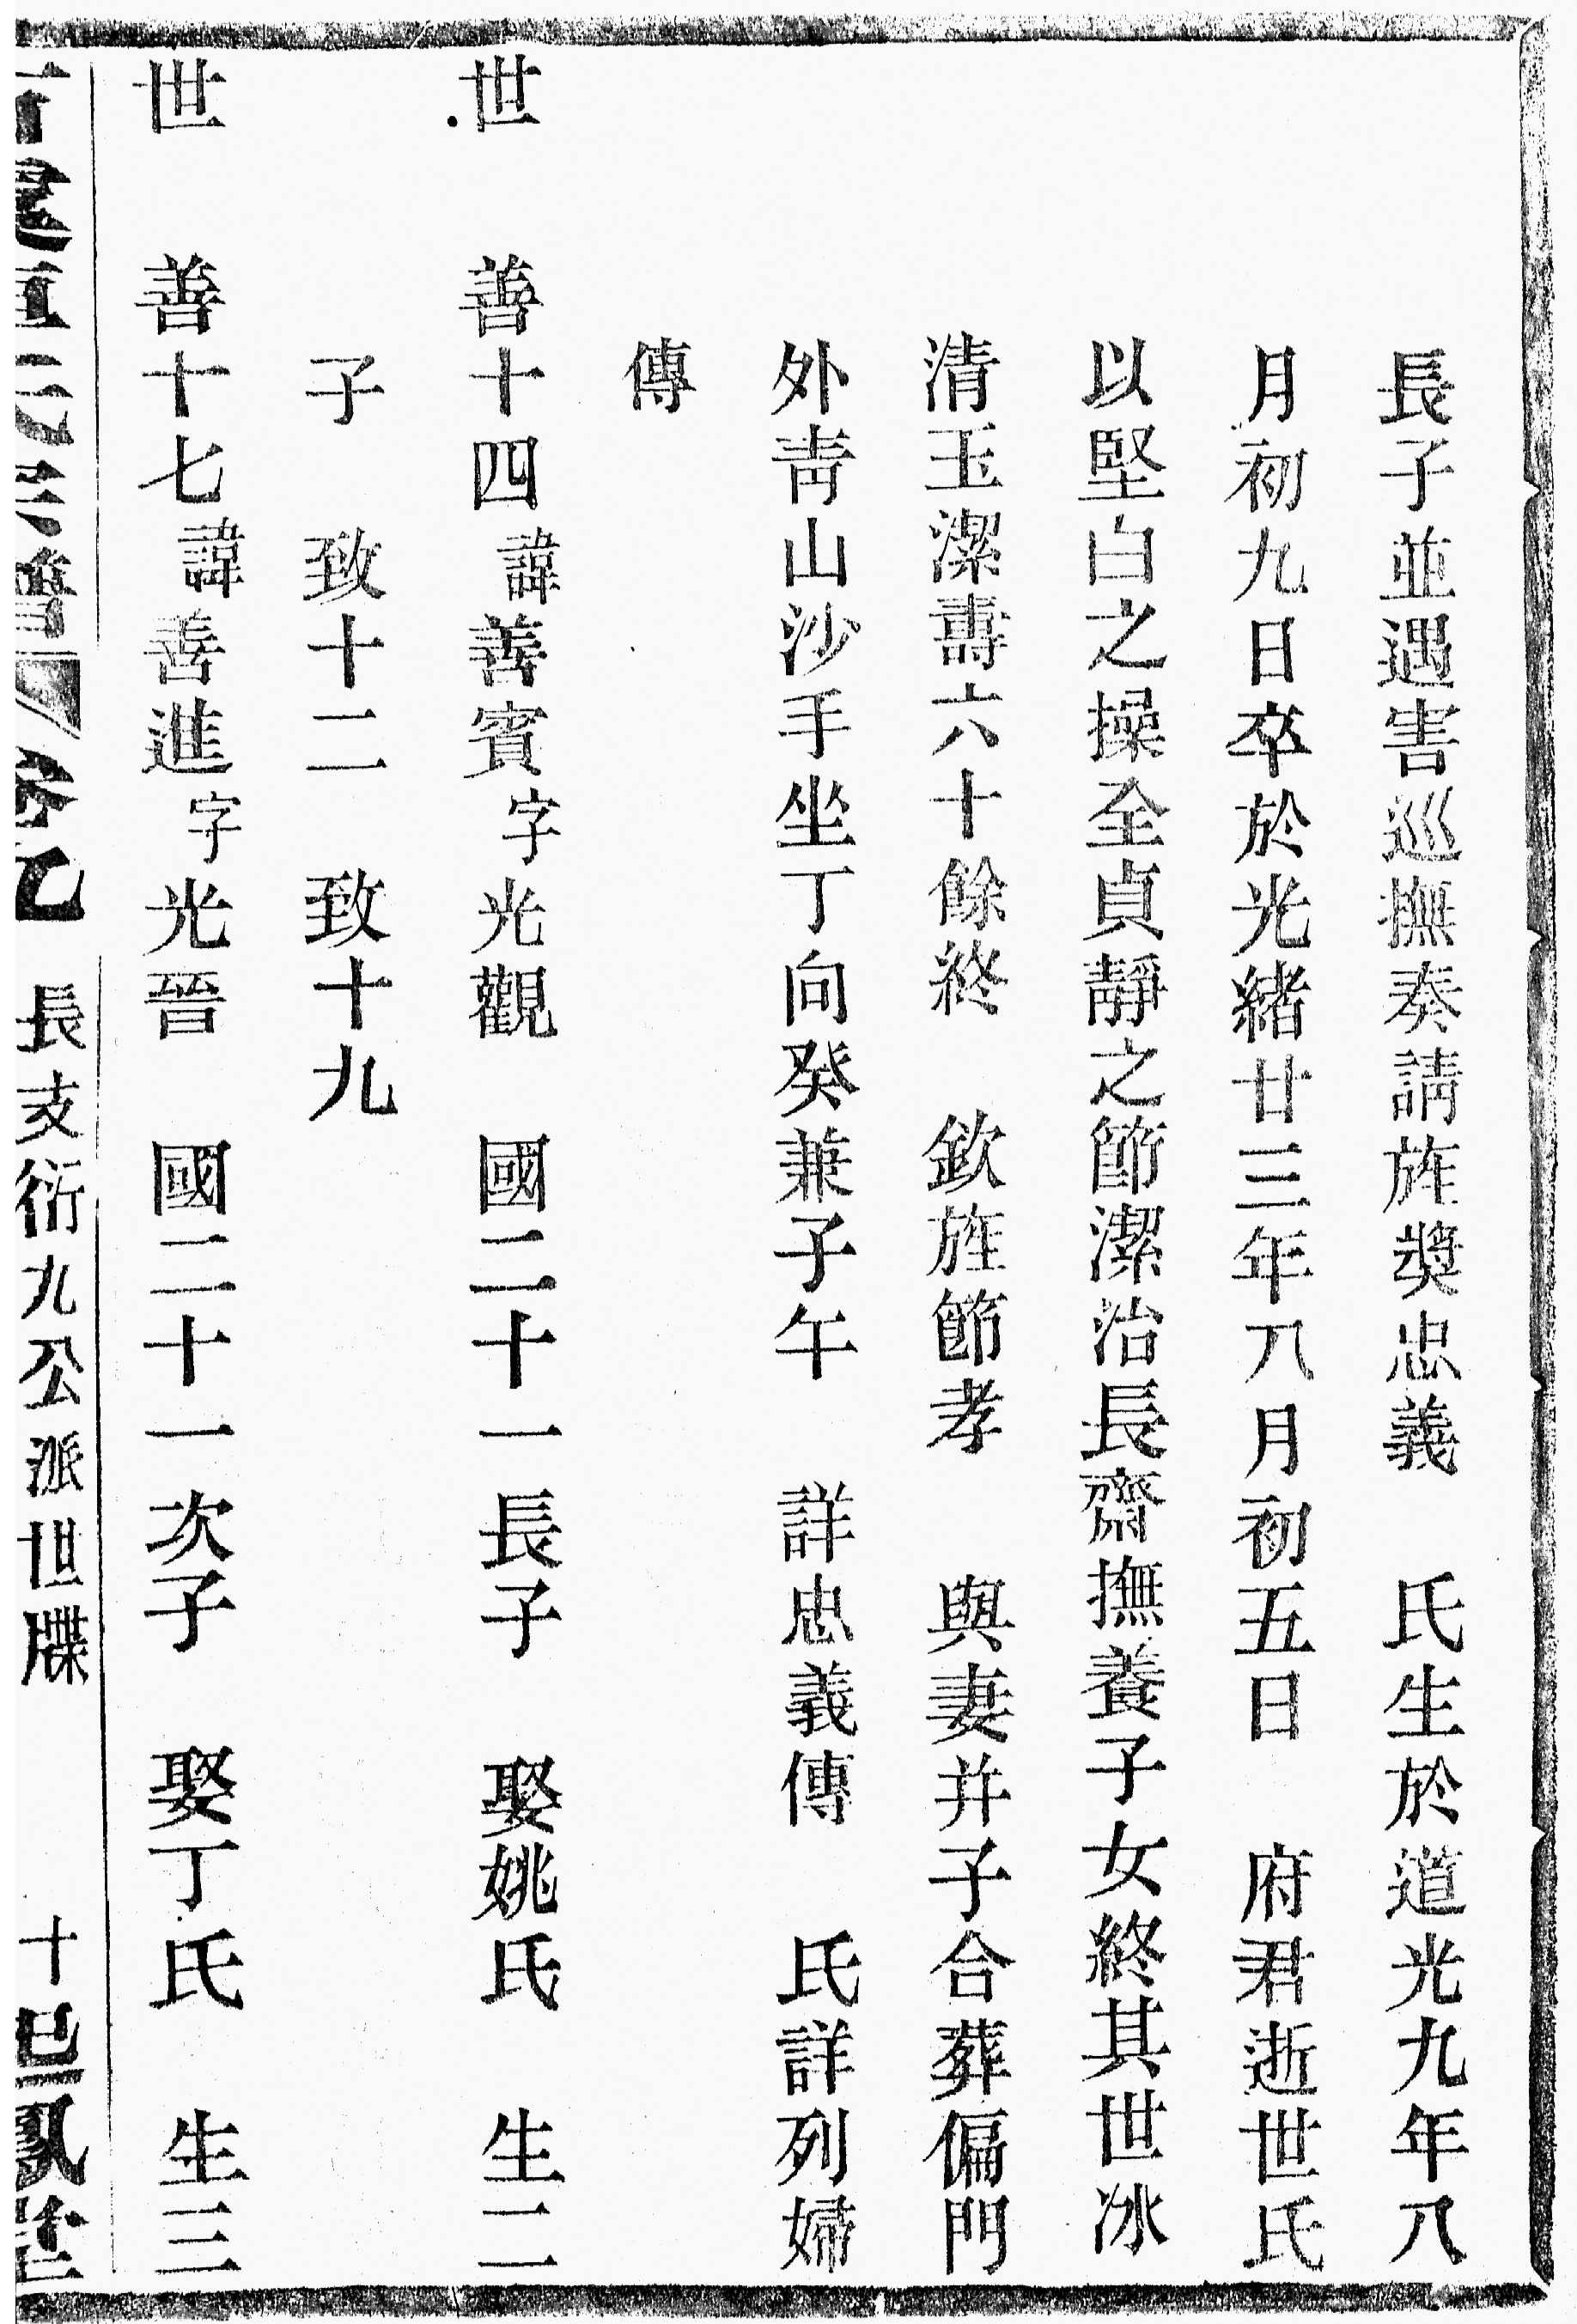 長子並遇害巡撫奏請旌奬忠義　氏生於道光九年八
月初九日卒於光緒廿三年八月初五日　府君逝世氏
以堅白之操全貞靜之節潔治長齋撫養子女終其世冰
清玉潔壽六十餘終　欽旌節孝　與妻并子合葬偏門
外靑山沙手坐丁向癸兼子午　詳忠義傳　氏詳列婦
傳
世　善十四諱善賓字光觀　國二十一長子　娶姚氏　生二
子　致十二　致十九
世　善十七諱善進字光晉　國二十一次子　娶丁氏　生三
卷乙　長支衍九公派世牒　十